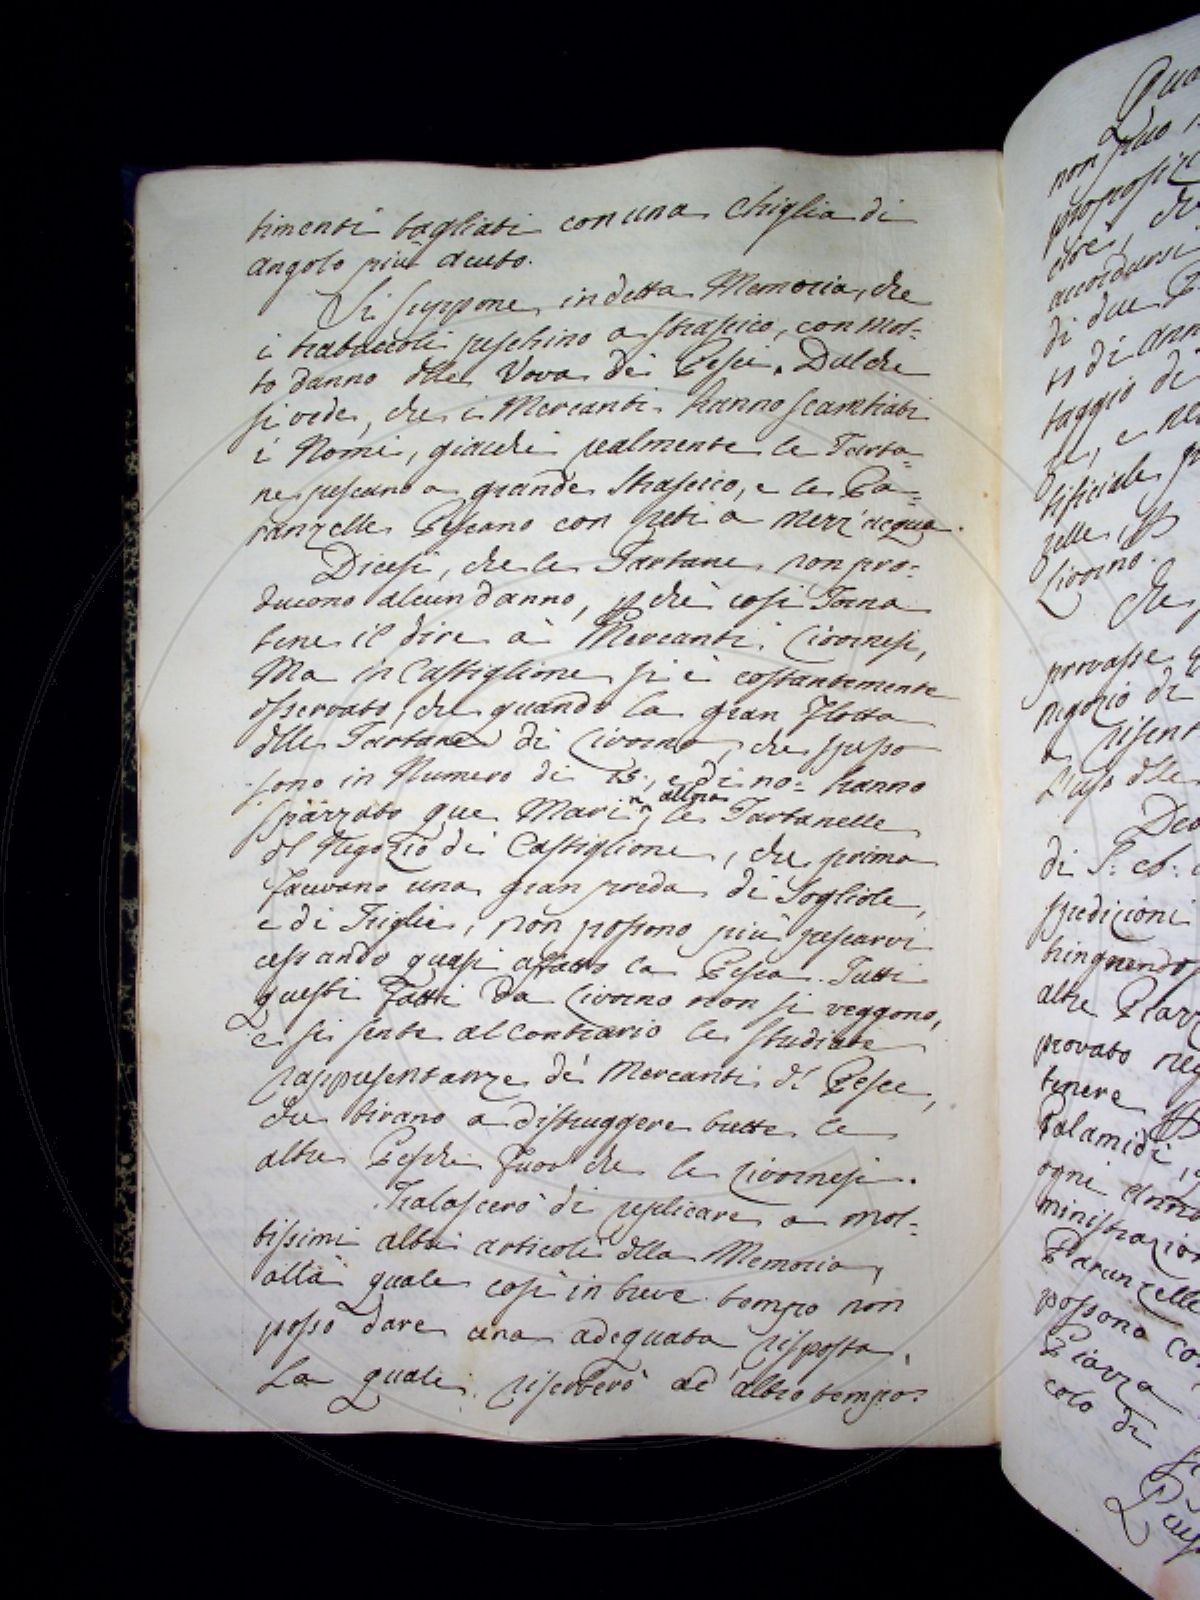 timenti tagliati con una Chiglia di
angolo più acuto.
Si suppone in detta Memoria, che
i trabaccoli peschino a strascico, con mol=
to danno dlle Vova dei Pesci. Dal che
si vede, che i Mercanti hanno scambiati
i Nomi, giacchè realmente le Tarta=
ne pescano a grande Strascico, e le Pa=
ranzelle Pescano con reti a mezz'acqua.
Dicesi, che le Tartane non pro=
ducono alcun danno, pchè così Torna
bene il dire a' Mercanti Livornesi,
Ma in Castiglione si è costantemente
osservato, che quando la gran Flotta
dlle Tartane di Livorno, che spesso
sono in Numero di 15., e di no= hanno
spazzato que Mari, allora le Tartanelle
dl Negozio di Castiglione, che prima
facevano una gran preda di Sogliole,
e di Triglie, non possono più pescarvi
cessando quasi affatto la Pesca. Tutti
questi Fatti da Livorno non si veggono,
e si sente al contrario le studiate
rappresentanze de' Mercanti dl Pesce,
che tirano a distruggere tutte le
altre Pesche fuor che le Livornesi.
Tralascerò di replicare a mol=
tissimi altri articoli dlla Memoria,
alla quale così in breve tempo non
posso dare una adeguata risposta,
La quale riserberò ad altro tempo:
Qua
non può
proposizi
cioè, che
accordarsi
di due P
ti di ann
taggio di
re, e ne
tificiale
zelle,
Livorno.
Che
provasse
negozio di
a risent
L'uso dlle
Deo
di S: eb:
spedizioni
tringnendo
altre Piazz
provato neg
tenere
Palamidi,
ogni anno
ministrazion
Paranzelle
possono co
Piazza
colo di